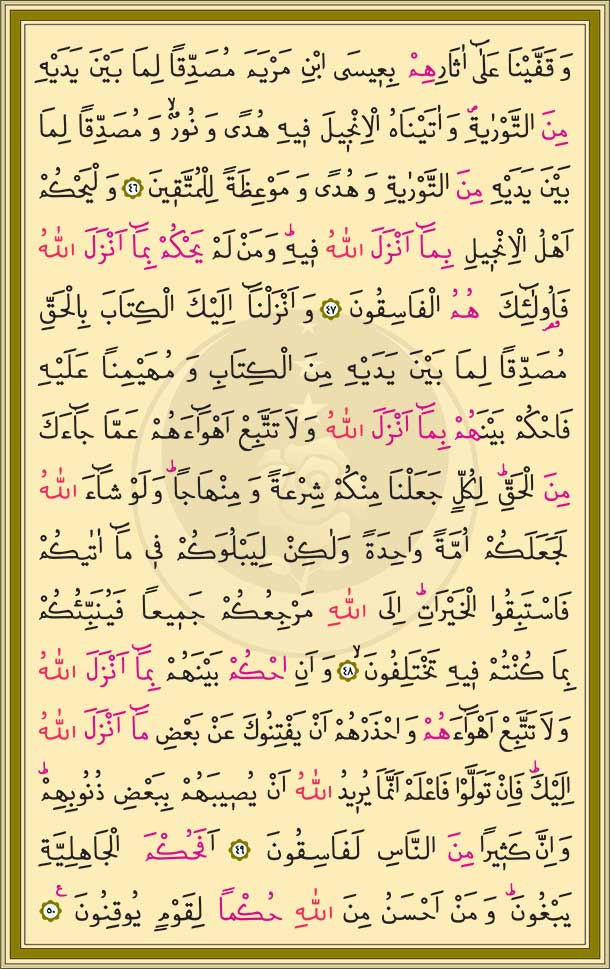 وَقَفَّيْنَا عَلٰٓى اٰثَارِهِمْ بِعٖيسَى ابْنِ مَرْيَمَ مُصَدِّقًا لِمَا بَيْنَ يَدَيْهِ
مِنَ التَّوْرٰيةِۖ وَاٰتَيْنَاهُ الْاِنْجٖيلَ فٖيهِ هُدًى وَنُورٌۙ وَمُصَدِّقًا لِمَا
بَيْنَ يَدَيْهِ مِنَ التَّوْرٰيةِ وَهُدًى وَمَوْعِظَةً لِلْمُتَّقٖينَ ٤٦ وَلْيَحْكُمْ
اَهْلُ الْاِنْجٖيلِ بِمَٓا اَنْزَلَ اللّٰهُ فٖيهِۜ وَمَنْ لَمْ يَحْكُمْ بِمَٓا اَنْزَلَ اللّٰهُ
فَاُو۬لٰٓئِكَ هُمُ الْفَاسِقُونَ ٤٧ وَاَنْزَلْنَٓا اِلَيْكَ الْكِتَابَ بِالْحَقِّ
مُصَدِّقًا لِمَا بَيْنَ يَدَيْهِ مِنَ الْكِتَابِ وَمُهَيْمِنًا عَلَيْهِ
فَاحْكُمْ بَيْنَهُمْ بِمَٓا اَنْزَلَ اللّٰهُ وَلَا تَتَّبِعْ اَهْوَٓاءَهُمْ عَمَّا جَٓاءَكَ
مِنَ الْحَقِّۜ لِكُلٍّ جَعَلْنَا مِنْكُمْ شِرْعَةً وَمِنْهَاجًاۜ وَلَوْ شَٓاءَ اللّٰهُ
لَجَعَلَكُمْ اُمَّةً وَاحِدَةً وَلٰكِنْ لِيَبْلُوَكُمْ فٖي مَٓا اٰتٰيكُمْ
فَاسْتَبِقُوا الْخَيْرَاتِۜ اِلَى اللّٰهِ مَرْجِعُكُمْ جَمٖيعًا فَيُنَبِّئُكُمْ
بِمَا كُنْتُمْ فٖيهِ تَخْتَلِفُونَۙ ٤٨ وَاَنِ احْكُمْ بَيْنَهُمْ بِمَٓا اَنْزَلَ اللّٰهُ
وَلَا تَتَّبِعْ اَهْوَٓاءَهُمْ وَاحْذَرْهُمْ اَنْ يَفْتِنُوكَ عَنْ بَعْضِ مَٓا اَنْزَلَ اللّٰهُ
اِلَيْكَۜ فَاِنْ تَوَلَّوْا فَاعْلَمْ اَنَّمَا يُرٖيدُ اللّٰهُ اَنْ يُصٖيبَهُمْ بِبَعْضِ ذُنُوبِهِمْۜ
وَاِنَّ كَثٖيرًا مِنَ النَّاسِ لَفَاسِقُونَ ٤٩ اَفَحُكْمَ الْجَاهِلِيَّةِ
يَبْغُونَۜ وَمَنْ اَحْسَنُ مِنَ اللّٰهِ حُكْمًا لِقَوْمٍ يُوقِنُونَ ع ٥٠